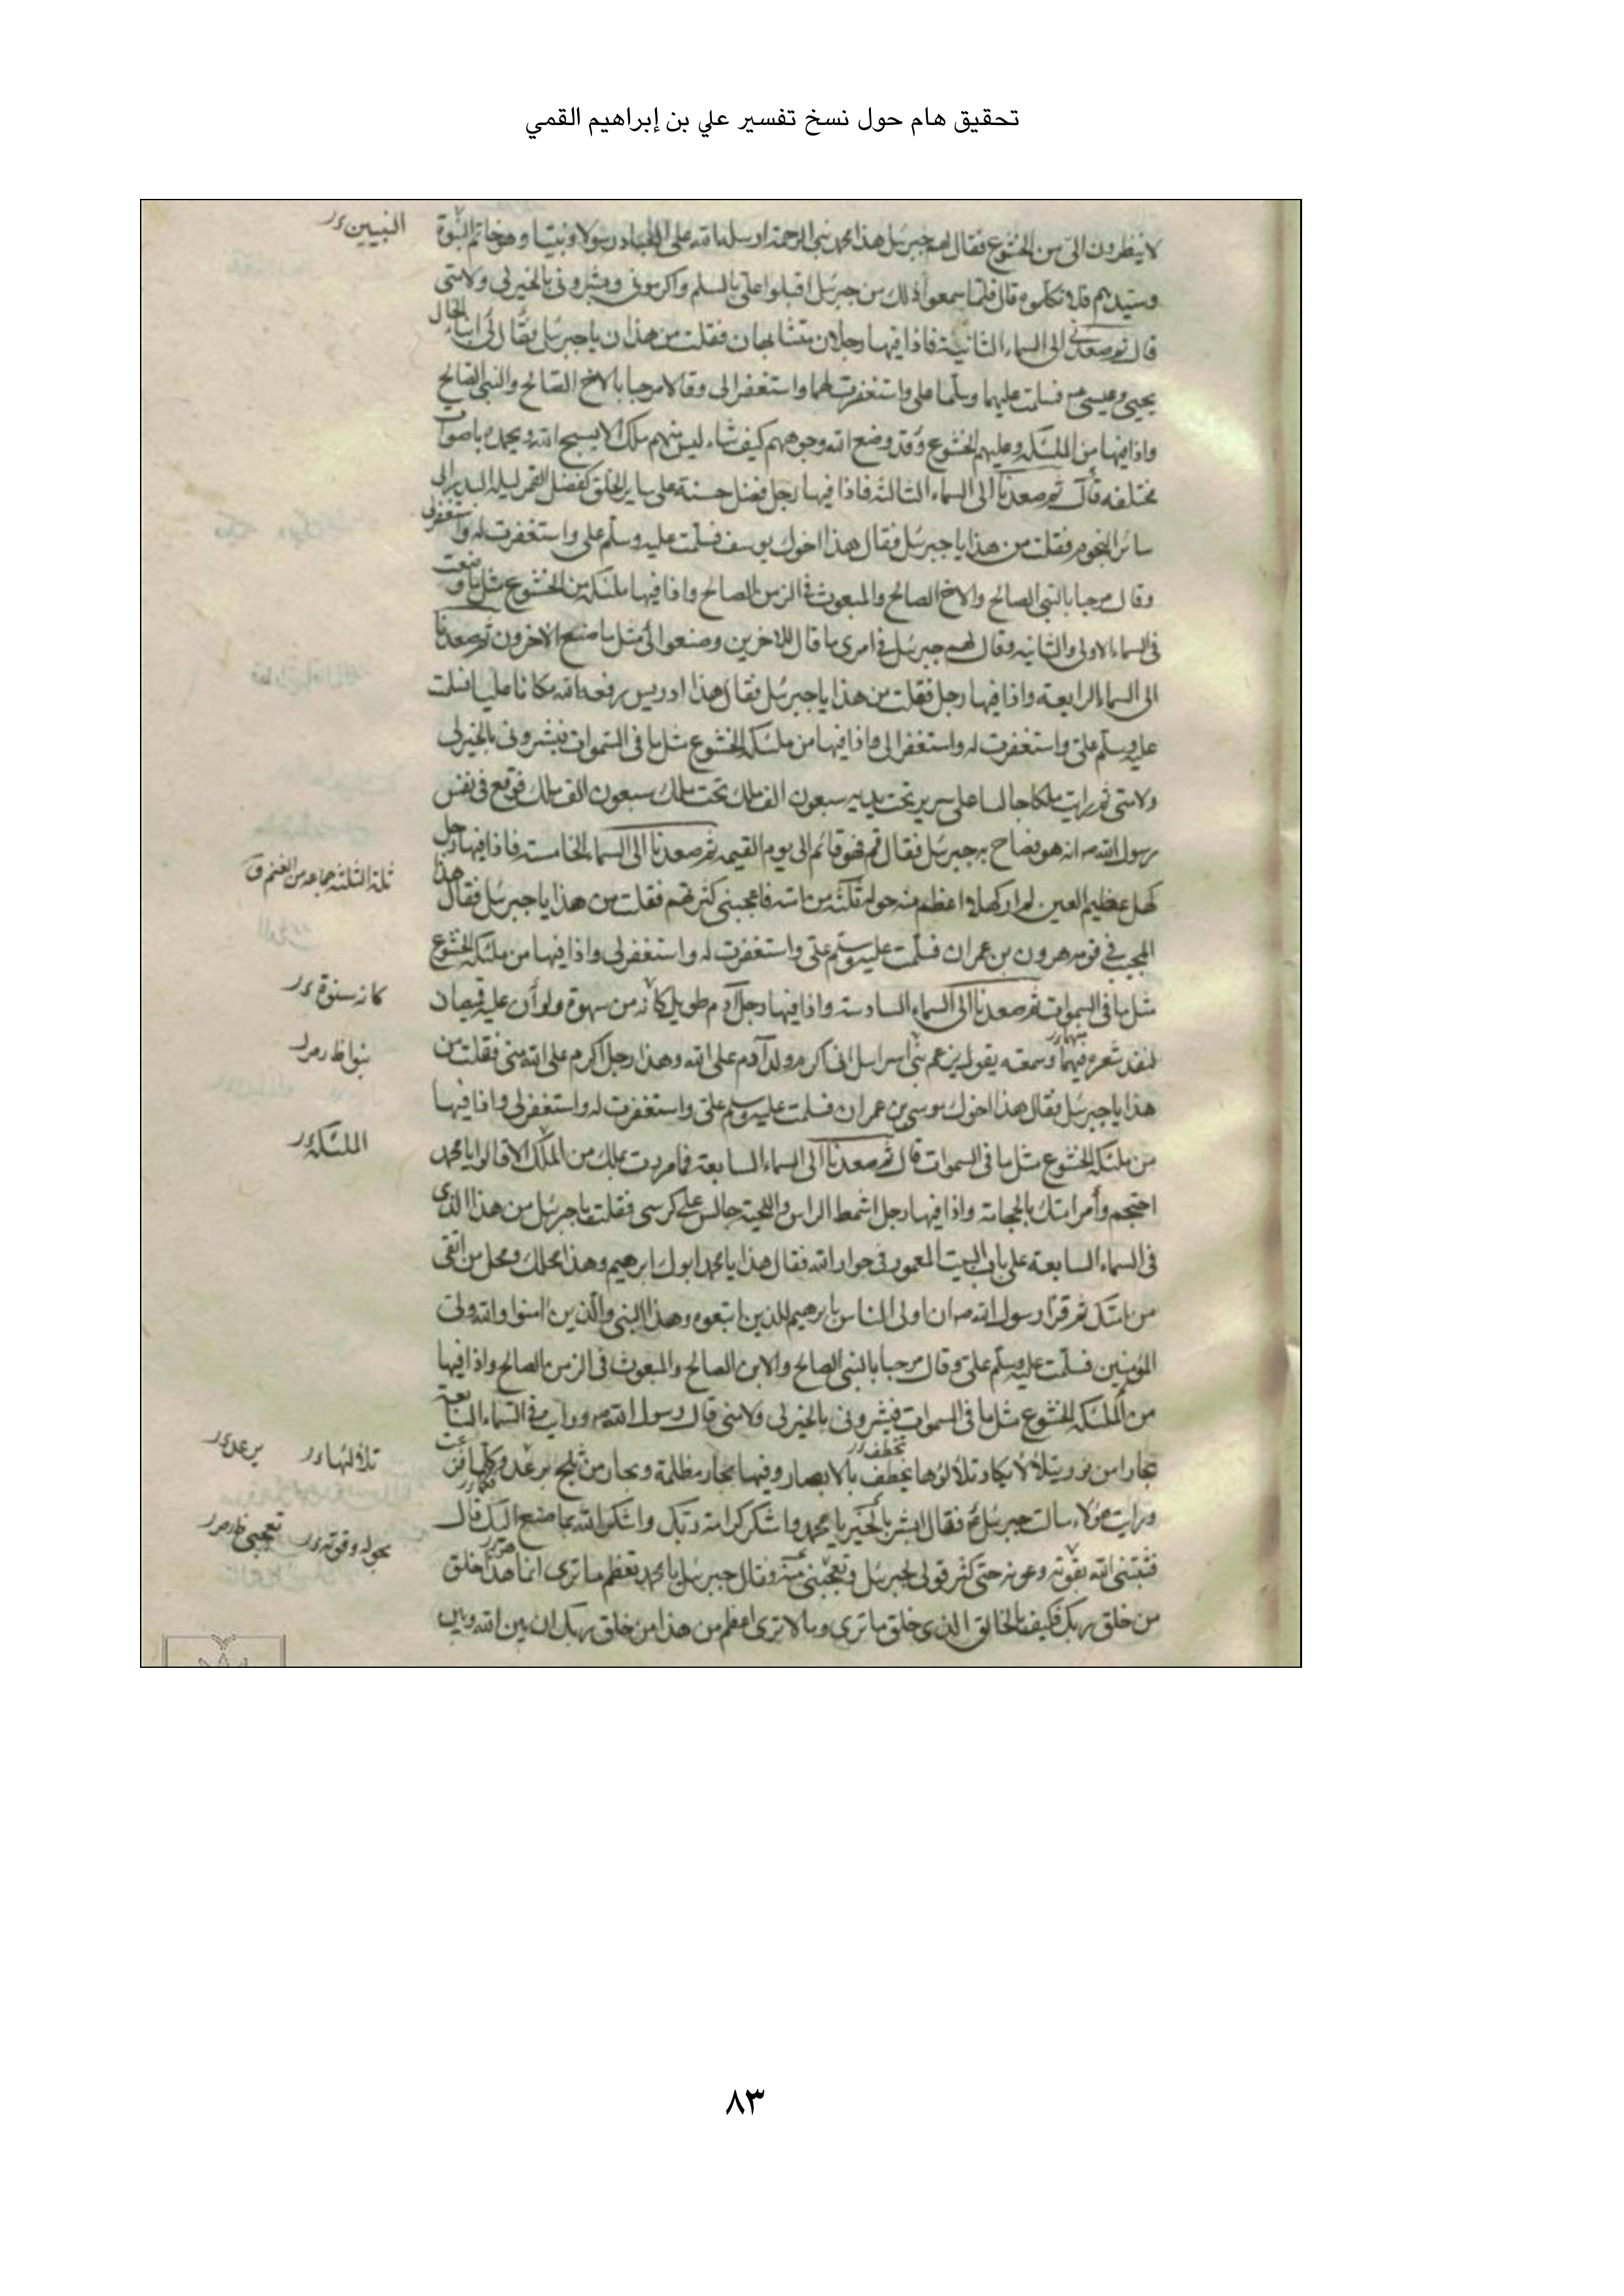 تحقيق هام حول نسخ تفسير علي بن إبراهيم القمي
لا ينظرون الى من الخشوع فقال لهم جبرئيل هذا محمد نبى الرحمة ارسله الله على العباد رسولا ونبيا وهو خاتم النبوة
وسيدهم فلا تكلموه قال فلما سمعوا ذلك من جبرئيل اقبلوا على بالسلم واكرمونى وبشرونى بالخير لى ولامتى
قال ثم صعد بى الى السماء الثانية فاذا فيها رجلان متشابهان فقلت من هذان يا جبرئيل فقال لى ابناء الخال
يحيى وعيسى فسلمت عليهما وسلما على واستغفرت لهما واستغفرا لى وقالا مرحبا بالاخ الصالح والنبى الصالح
واذا فيها من الملئكه وعليهم الخشوع وقد وضع الله وجوههم كيف شاء ليس منهم ملك الا يسبح الله ويحمده باصوات
مختلفه قال ثم صعدنا الى السماء الثالثه فاذا فيها رجل فضل حسنه على ساير الخلق كفضل القمر ليله البدر على
سائر النجوم فقلت من هذا يا جبرئيل فقال هذا اخوك يوسف فسلمت عليه وسلم على واستغفرت له واستغفر لى
وقال مرحبا بالنبى الصالح والاخ الصالح والمبعوث فى الزمن الصالح واذا فيها ملئكه من الخشوع مثل ما وصفت
فى السماء الاولى والثانيه وقال لهم جبرئيل فى امرى ما قال للاخرين وصنعوا لى مثل ما صنع الاخرون ثم صعدنا
الى السماء الرابعه واذا فيها رجل فقلت من هذا يا جبرئيل فقال هذا ادريس رفعه الله مكانا عليا فسلمت
عليه وسلم على واستغفرت له واستغفر لى واذا فيها من ملئكه الخشوع مثل ما فى السموات فبشرونى بالخير لى
ولامتى ثم رايت ملكا جالسا على سرير تحت يديه سبعون الف ملك تحت ملك سبعون الف ملك فوقع فى نفس
رسول الله انه هو فصاح به جبرئيل فقال قم فهو قائم الى يوم القيمه ثم صعدنا الى السماء الخامسه فاذا فيها رجل
كهل عظيم العين لم ار كهلا اعظم منه حوله ثلثه من امته فاعجبنى كثرتهم فقلت من هذا يا جبرئيل فقال هذا
المجيب فى قومه هرون بن عمران فسلمت عليه وسلم على واستغفرت له واستغفر لى واذا فيها من ملئكه الخشوع
مثل ما فى السموات ثم صعدنا الى السماء السادسه واذا فيها رجل آدم طويل كانه من سهوة ولو ان عليه قميصان
لنفذ شعره فيهما وسمعته يقول يزعم بنى اسرائيل انى اكرم ولد آدم على الله وهذا رجل اكرم على الله منى فقلت من
هذا يا جبرئيل فقال هذا اخوك موسى بن عمران فسلمت عليه وسلم على واستغفرت له واستغفر لى واذا فيها
من ملئكه الخشوع مثل ما فى السموات قال ثم صعدنا الى السماء السابعة فما مررت بملك من الملك الا قالوا يا محمد
احتجم وأمر امتك بالحجامة واذا فيها رجل اشمط الراس واللحية جالس على كرسى فقلت يا جبرئيل من هذا الذى
فى السماء السابعة على باب البيت المعمور فى جوار الله فقال هذا يا محمد ابوك ابرهيم وهذا محلك ومحل من اتقى
من امتك ثم قرا رسول الله ان اولى الناس بابرهيم للذين اتبعوه وهذا النبى والذين امنوا والله ولى
المؤمنين فسلمت عليه وسلم على وقال مرحبا بالنبى الصالح والابن الصالح والمبعوث فى الزمن الصالح واذا فيها
من الملئكه الخشوع مثل ما فى السموات فبشرونى بالخير لى ولامتى قال رسول الله ورايت فى السماء السابعة
بحارا من نور يتلألأ يكاد تلألؤها يخطف بالابصار وفيها بحار مظلمة وبحار من ثلج يرعد
ورايت هؤلاء سالت جبرئيل فقال ابشر بالخير يا محمد واشكر كرامة ربك واشكر الله بما صنع اليك قال
فثبتنى الله بقوته وعونه حتى كثر قولى لجبرئيل وتعجبنى منه وقال جبرئيل يا محمد تعظم ما ترى انما هذا خلق
من خلق ربك فكيف بالخالق الذى خلق ما ترى وما لا ترى اعظم من هذا من خلق ربك ان بين الله وبين
النبيين
ثلة الثلثه جماعه من الغنم ق
كانه سنوة
الملئكة
تلألئها
يرعد
بحوله وقوته
تعجبى
٨٣